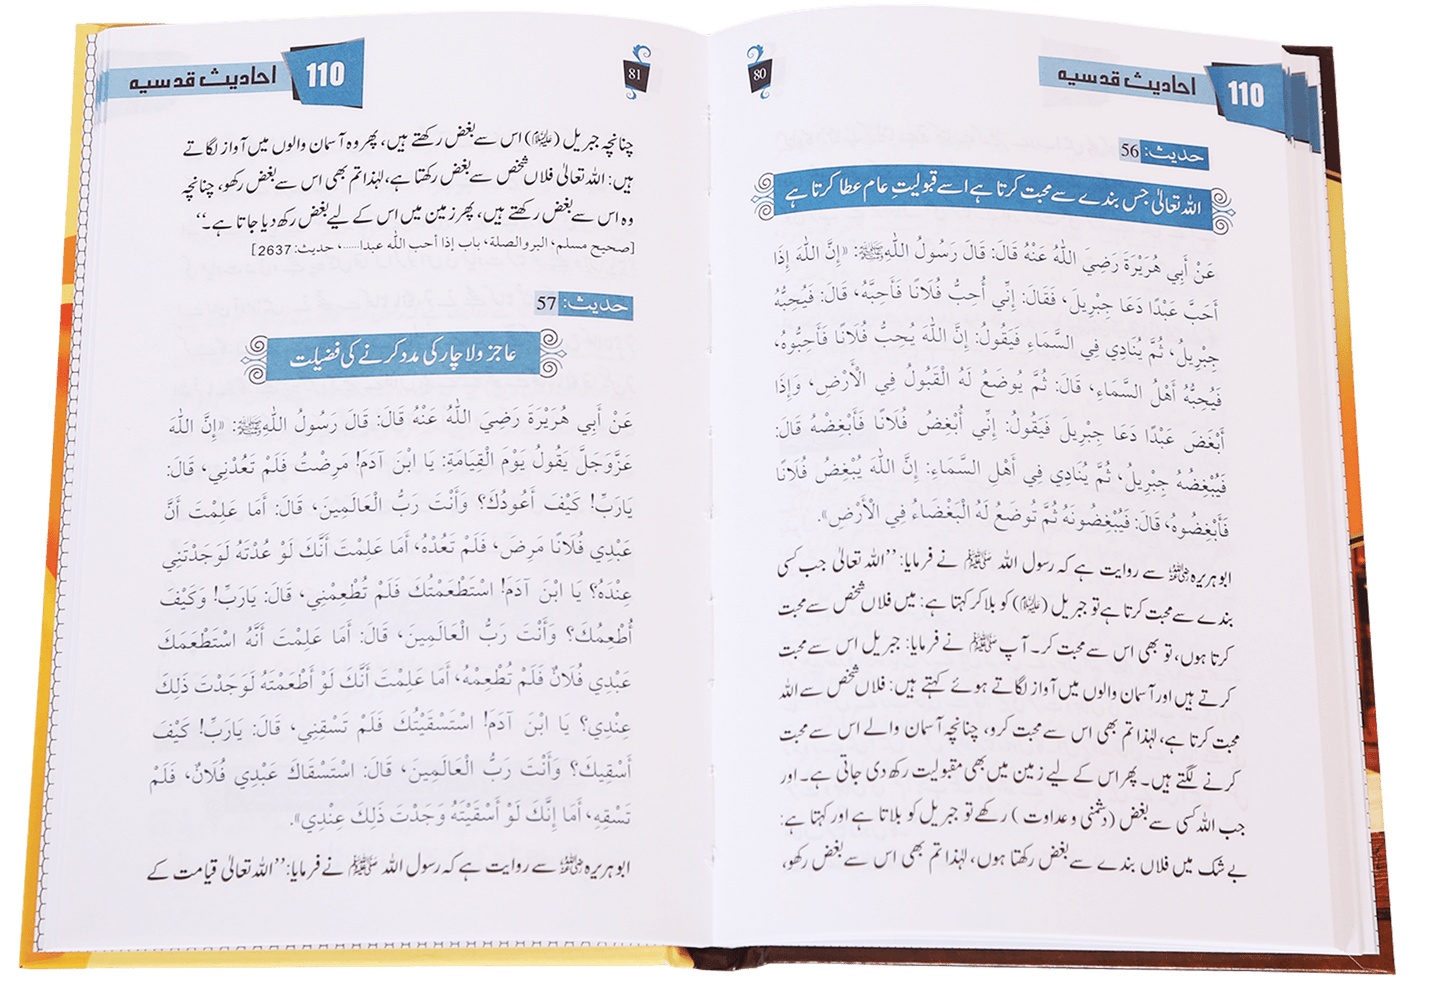 110 احادیث قدسیہ
80
حدیث: 56
اللہ تعالیٰ جس بندے سے محبت کرتا ہے اسے قبولیتِ عام عطا کرتا ہے
عَنْ أَبِي هُرَيْرَةَ رَضِيَ اللّٰهُ عَنْهُ قَالَ: قَالَ رَسُولُ اللّٰهِ ﷺ: «إِنَّ اللّٰهَ إِذَا
أَحَبَّ عَبْدًا دَعَا جِبْرِيلَ، فَقَالَ: إِنِّي أُحِبُّ فُلَانًا فَأَحِبَّهُ، قَالَ: فَيُحِبُّهُ
جِبْرِيلُ، ثُمَّ يُنَادِي فِي السَّمَاءِ فَيَقُولُ: إِنَّ اللّٰهَ يُحِبُّ فُلَانًا فَأَحِبُّوهُ،
فَيُحِبُّهُ أَهْلُ السَّمَاءِ، قَالَ: ثُمَّ يُوضَعُ لَهُ الْقَبُولُ فِي الْأَرْضِ، وَإِذَا
أَبْغَضَ عَبْدًا دَعَا جِبْرِيلَ فَيَقُولُ: إِنِّي أُبْغِضُ فُلَانًا فَأَبْغِضْهُ قَالَ:
فَيُبْغِضُهُ جِبْرِيلُ، ثُمَّ يُنَادِي فِي أَهْلِ السَّمَاءِ: إِنَّ اللّٰهَ يُبْغِضُ فُلَانًا
فَأَبْغِضُوهُ، قَالَ: فَيُبْغِضُونَهُ ثُمَّ تُوضَعُ لَهُ الْبَغْضَاءُ فِي الْأَرْضِ».
ابو ہریرہ رضی اللہ عنہ سے روایت ہے کہ رسول اللہ ﷺ نے فرمایا: ’’اللہ تعالیٰ جب کسی
بندے سے محبت کرتا ہے تو جبریل (علیہ السلام) کو بلا کر کہتا ہے: میں فلاں شخص سے محبت
کرتا ہوں، تو بھی اس سے محبت کر۔ آپ ﷺ نے فرمایا: جبریل اس سے محبت
کرتے ہیں اور آسمان والوں میں آواز لگاتے ہوئے کہتے ہیں: فلاں شخص سے اللہ
محبت کرتا ہے، لہٰذا تم بھی اس سے محبت کرو، چنانچہ آسمان والے اس سے محبت
کرنے لگتے ہیں۔ پھر اس کے لیے زمین میں بھی مقبولیت رکھ دی جاتی ہے۔ اور
جب اللہ کسی سے بغض (دشمنی و عداوت) رکھے تو جبریل کو بلاتا ہے اور کہتا ہے:
بے شک میں فلاں بندے سے بغض رکھتا ہوں، لہٰذا تم بھی اس سے بغض رکھو،
110 احادیث قدسیہ
81
چنانچہ جبریل (علیہ السلام) اس سے بغض رکھتے ہیں، پھر وہ آسمان والوں میں آواز لگاتے
ہیں: اللہ تعالیٰ فلاں شخص سے بغض رکھتا ہے، لہٰذا تم بھی اس سے بغض رکھو، چنانچہ
وہ اس سے بغض رکھتے ہیں، پھر زمین میں اس کے لیے بغض رکھ دیا جاتا ہے۔‘‘
[صحیح مسلم، البر والصلة، باب إذا أحب اللّٰه عبدا.....، حدیث: 2637]
حدیث: 57
عاجز و لاچار کی مدد کرنے کی فضیلت
عَنْ أَبِي هُرَيْرَةَ رَضِيَ اللّٰهُ عَنْهُ قَالَ: قَالَ رَسُولُ اللّٰهِ ﷺ: «إِنَّ اللّٰهَ
عَزَّوَجَلَّ يَقُولُ يَوْمَ الْقِيَامَةِ: يَا ابْنَ آدَمَ! مَرِضْتُ فَلَمْ تَعُدْنِي، قَالَ:
يَارَبِّ! كَيْفَ أَعُودُكَ؟ وَأَنْتَ رَبُّ الْعَالَمِينَ، قَالَ: أَمَا عَلِمْتَ أَنَّ
عَبْدِي فُلَانًا مَرِضَ، فَلَمْ تَعُدْهُ، أَمَا عَلِمْتَ أَنَّكَ لَوْ عُدْتَهُ لَوَجَدْتَنِي
عِنْدَهُ؟ يَا ابْنَ آدَمَ! اسْتَطْعَمْتُكَ فَلَمْ تُطْعِمْنِي، قَالَ: يَارَبِّ! وَكَيْفَ
أُطْعِمُكَ؟ وَأَنْتَ رَبُّ الْعَالَمِينَ، قَالَ: أَمَا عَلِمْتَ أَنَّهُ اسْتَطْعَمَكَ
عَبْدِي فُلَانٌ فَلَمْ تُطْعِمْهُ، أَمَا عَلِمْتَ أَنَّكَ لَوْ أَطْعَمْتَهُ لَوَجَدْتَ ذَلِكَ
عِنْدِي؟ يَا ابْنَ آدَمَ! اسْتَسْقَيْتُكَ فَلَمْ تَسْقِنِي، قَالَ: يَارَبِّ! كَيْفَ
أَسْقِيكَ؟ وَأَنْتَ رَبُّ الْعَالَمِينَ، قَالَ: اسْتَسْقَاكَ عَبْدِي فُلَانٌ، فَلَمْ
تَسْقِهِ، أَمَا إِنَّكَ لَوْ أَسْقَيْتَهُ وَجَدْتَ ذَلِكَ عِنْدِي».
ابو ہریرہ رضی اللہ عنہ سے روایت ہے کہ رسول اللہ ﷺ نے فرمایا: ’’اللہ تعالیٰ قیامت کے